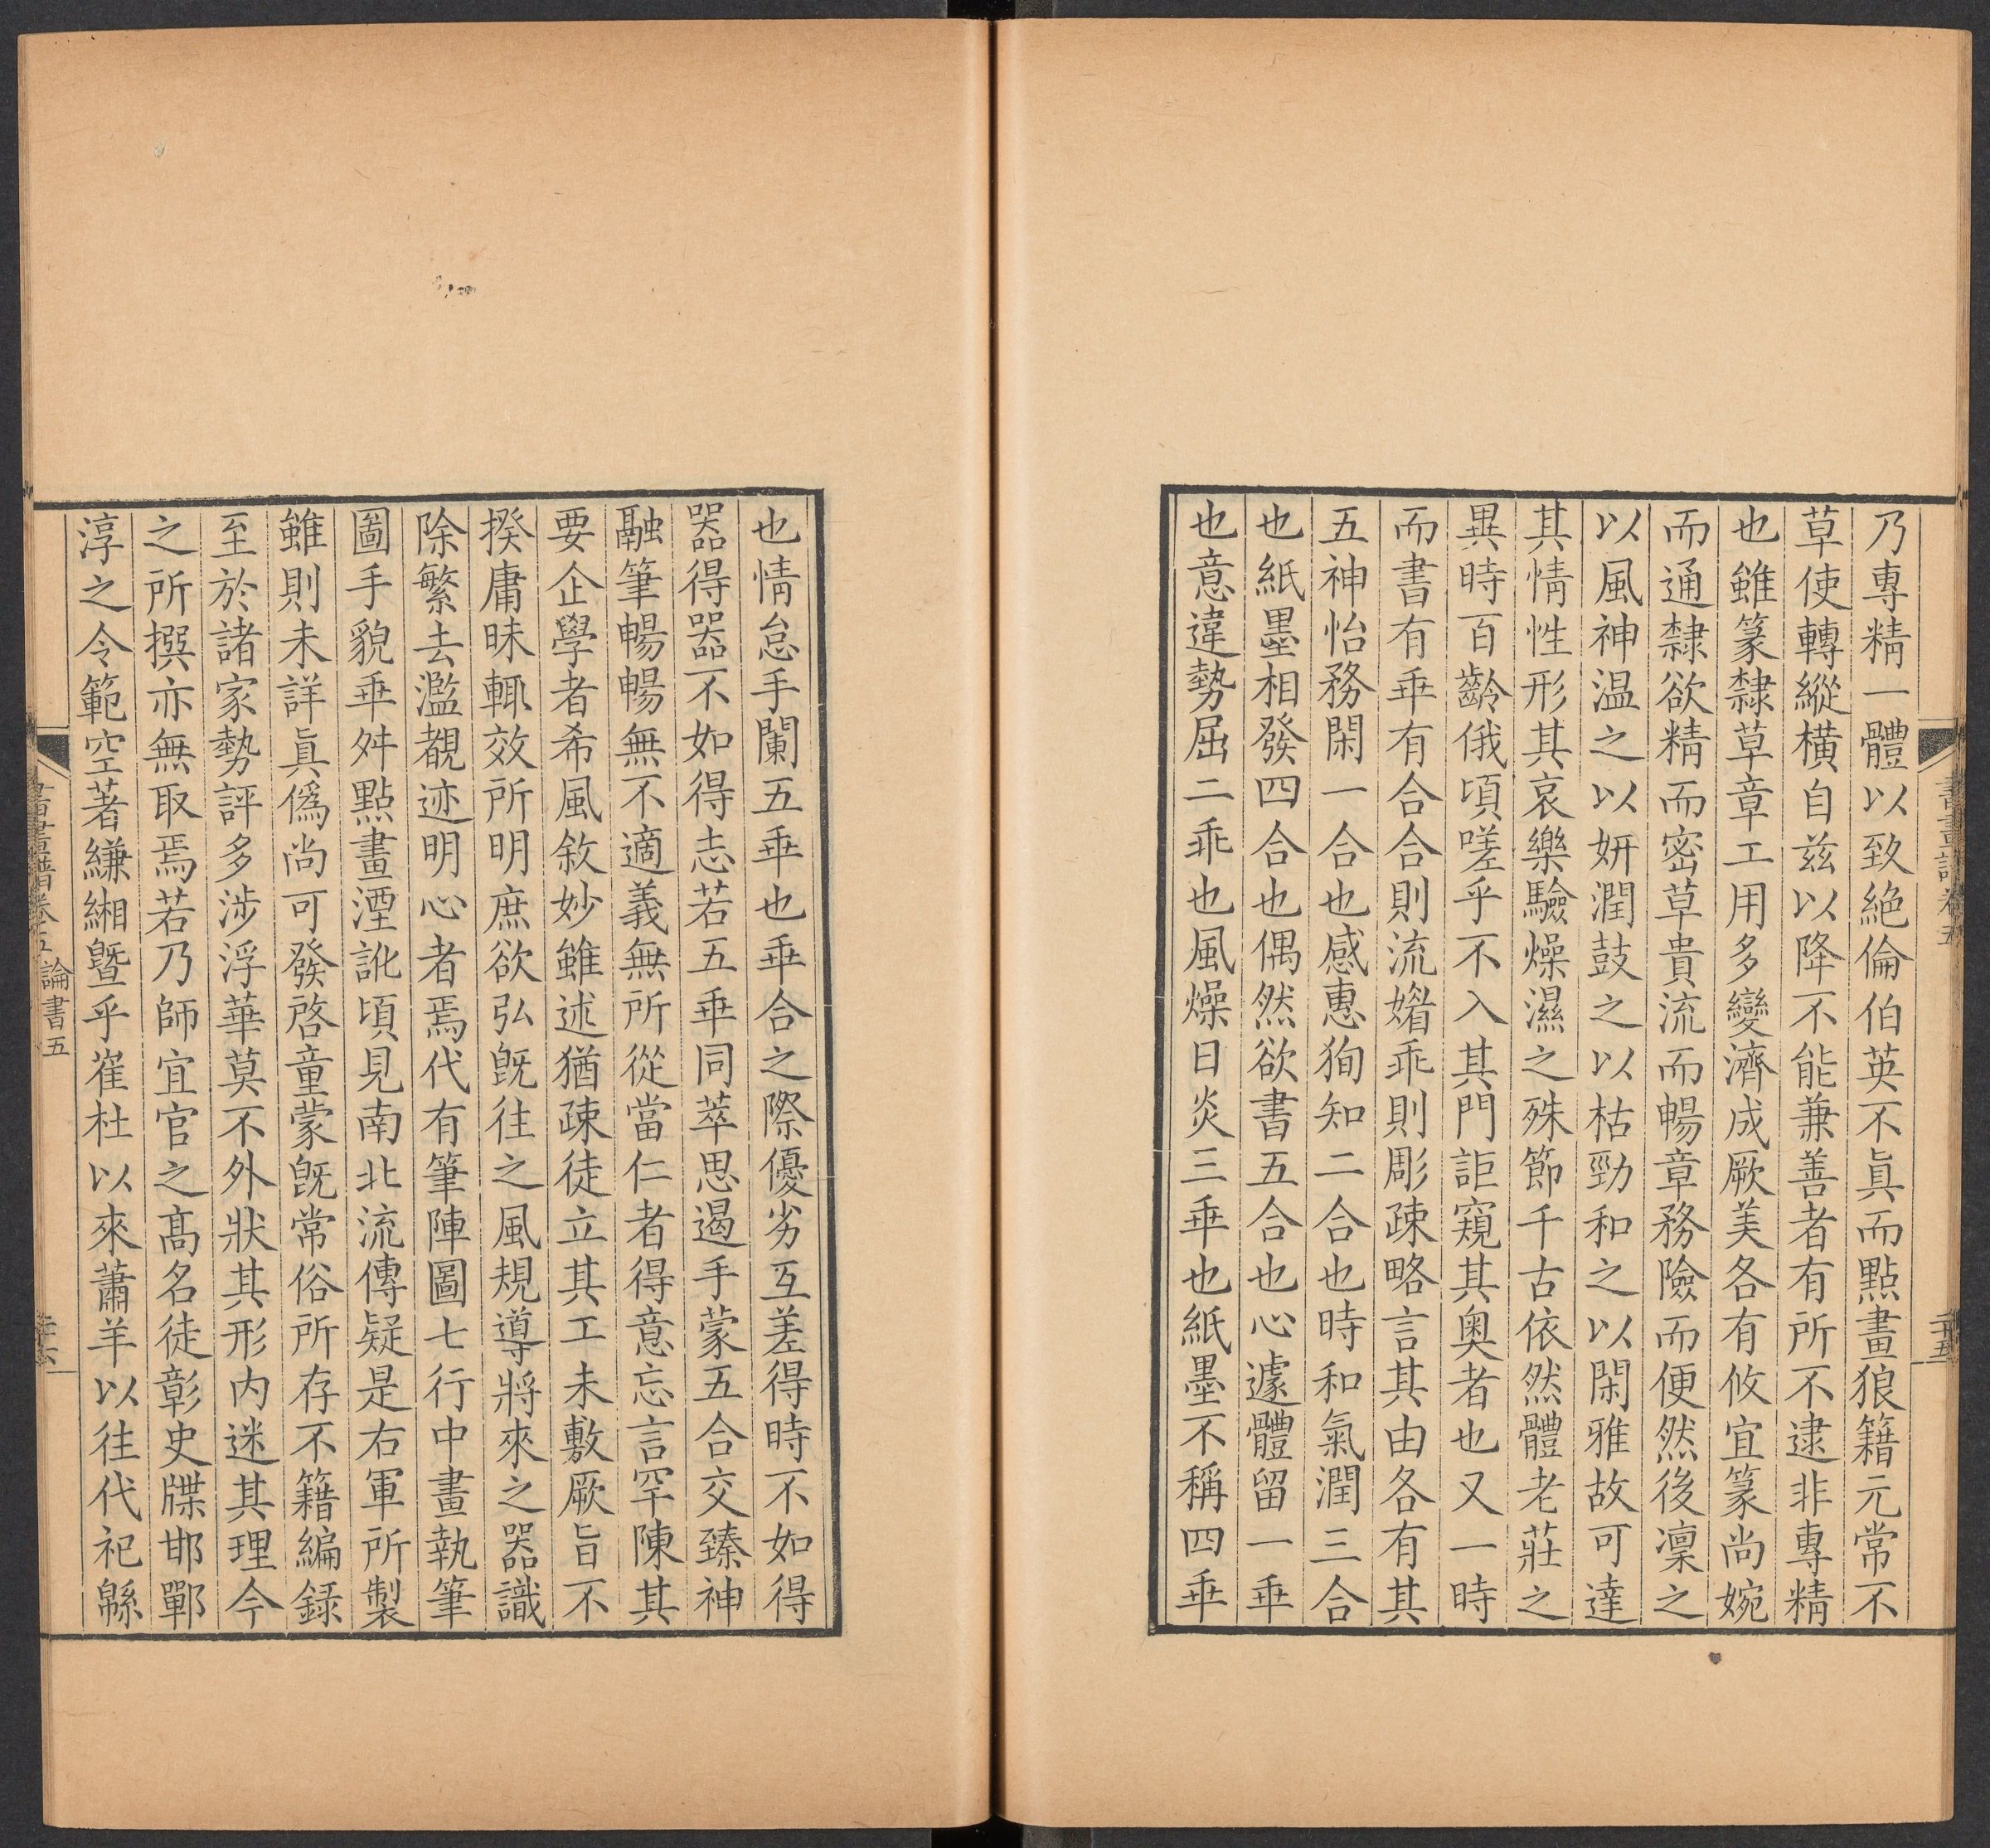 乃專精一體以致絶倫伯英不眞而點畫狼籍元常不
草使轉縱橫自兹以降不能兼善者有所不逮非專精
也雖篆隸草章工用多變濟成厥美各有攸宜篆尚婉
而通隸欲精而密草貴流而暢章務險而便然後凜之
以風神温之以妍潤鼓之以枯勁和之以閑雅故可達
其情性形其哀樂驗燥濕之殊節千古依然體老莊之
異時百齡俄頃嗟乎不入其門詎窺其奧者也又一時
而書有乖有合合則流媚乖則彫疎略言其由各有其
五神怡務閑一合也感惠狥知二合也時和氣潤三合
也紙墨相發四合也偶然欲書五合也心遽體留一乖
也意違勢屈二乖也風燥日炎三乖也紙墨不稱四乖
書畫譜卷五
二十五
也情怠手闌五乖也乖合之際優劣互差得時不如得
器得器不如得志若五乖同萃思遏手蒙五合交臻神
融筆暢暢無不適蒙無所從當仁者得意忘言罕陳其
要企學者希風敘妙雖述猶疎徒立其工未敷厥旨不
揆庸昧輒效所明庶欲弘既往之風規導將來之器識
除繁去濫覩迹明心者焉代有筆陣圖七行中畫執筆
圖手貌乖舛點畫湮訛頃見南北流傳疑是右軍所製
雖則未詳眞僞尚可發啓童蒙既常俗所存不籍編録
至於諸家勢評多涉浮華莫不外狀其形内迷其理今
之所撰亦無取焉若乃師宜官之髙名徒彰史牒邯鄲
淳之令範空著縑緗暨乎崔杜以來蕭羊以往代祀緜
書畫譜卷五 論書五
二十六